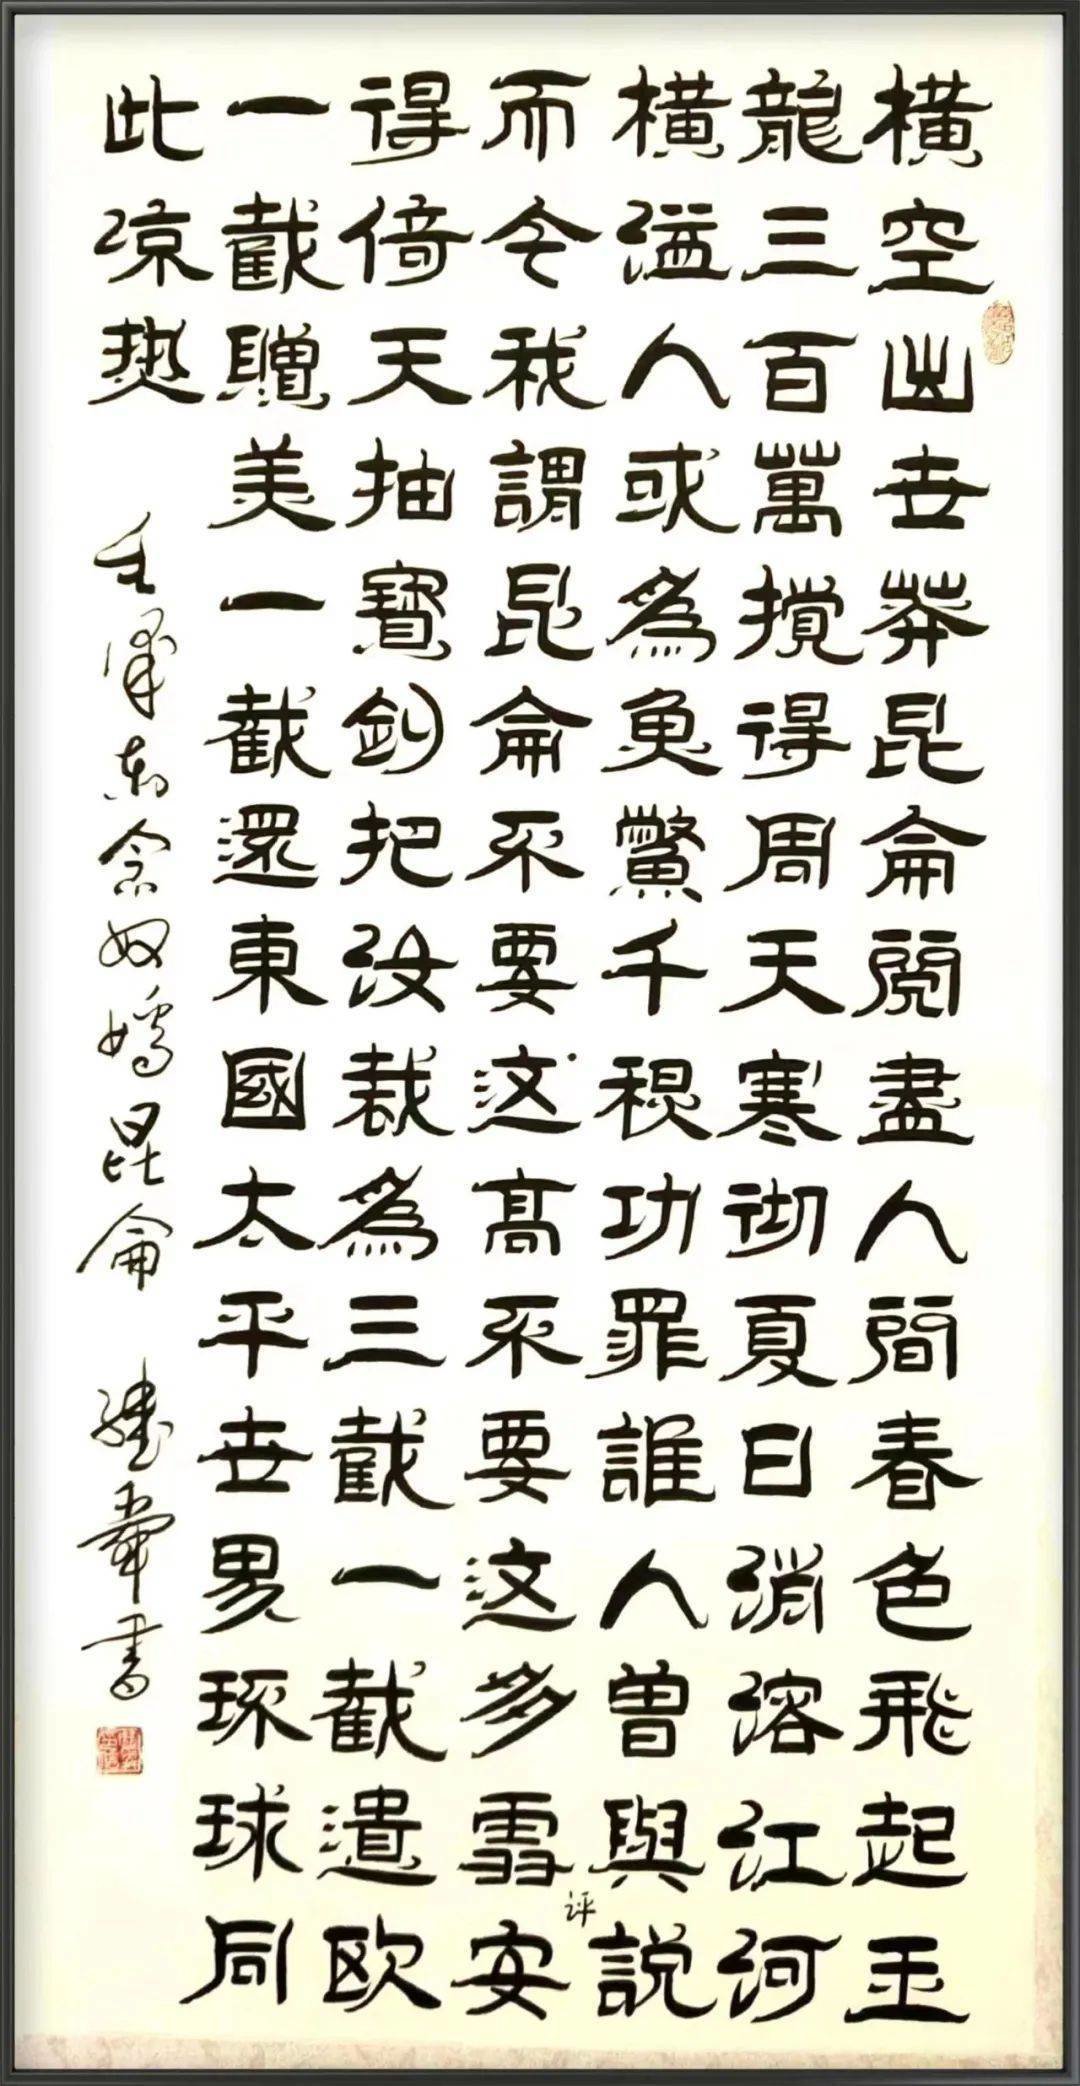 橫空出世莽昆侖閱盡人間春色飛起玉
龍三百萬攪得周天寒徹夏日消溶江河
橫溢人或為魚鱉千秋功罪誰人曾與説
评
而今我謂昆侖不要这高不要这多雪安
得倚天抽寶劍把汝裁為三截一截遺欧
一截贈美一截還東國太平世界环球同
此凉热
毛澤東念奴嬌昆侖
書